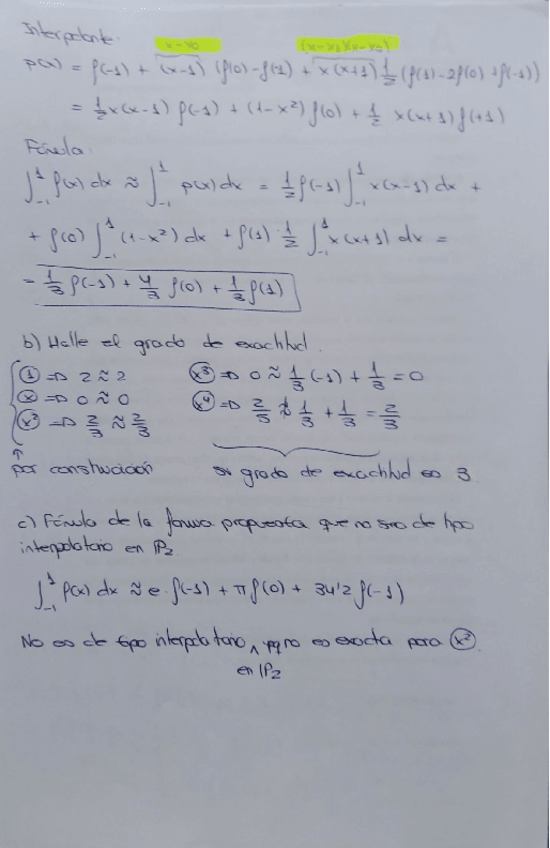 Interpolante.
x-x₀ (x-x₀)(x-x₁)
p(x) = f(-1) + (x-1) (f(0)-f(1) + x(x+1) 1/2 (f(1)-2f(0)+f(-1))
= 1/2 x(x-1) f(-1) + (1-x²) f(0) + 1/2 x(x+1) f(+1)
Fórmula.
∫₋₁¹ f(x) dx ≈ ∫₋₁¹ p(x) dx = 1/2 f(-1) ∫₋₁¹ x(x-1) dx +
+ f(0) ∫₋₁¹ (1-x²) dx + f(1) 1/2 ∫₋₁¹ x(x+1) dx =
= 1/3 f(-1) + 4/3 f(0) + 1/3 f(1)
b) Halle el grado de exactitud.
① => 2 ≈ 2
ⓧ => 0 ≈ 0
(x²) => 2/3 ≈ 2/3
↑
por construcción
(x³) => 0 ≈ 1/3 (-1) + 1/3 = 0
(x⁴) => 2/5 ≉ 1/3 + 1/3 = 2/3
grado de exactitud es 3.
c) Fórmula de la forma propuesta que no sea de tipo
interpolatorio en IP₂
∫₋₁¹ f(x) dx ≈ e f(-1) + π f(0) + 34'2 f(-1)
No es de tipo interpolatorio, pq no es exacta para (x²)
en IP₂